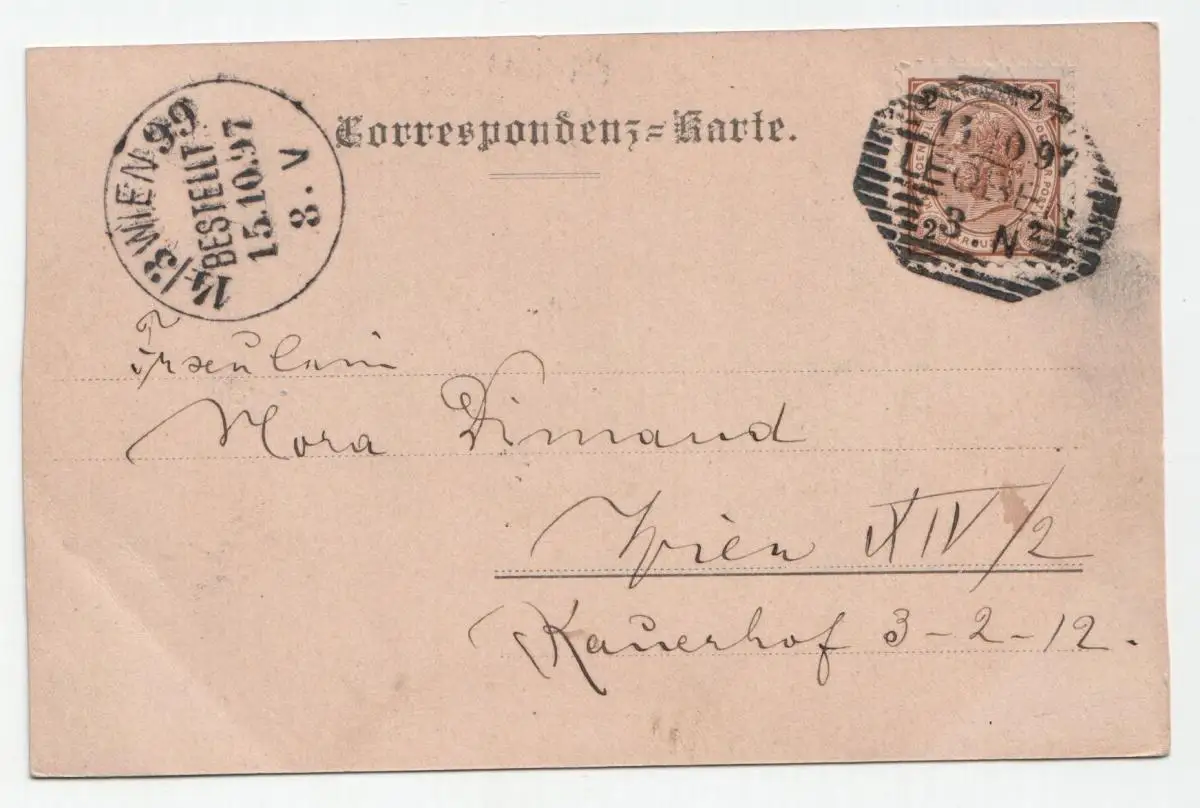 Correspondenz=Karte.
14/3 WIEN 99
BESTELLT
15.10.97
8. V
2 2
3 N
2 2
Fräulein
Nora Dimand
Wien XIV/2
Kauerhof 3-2-12.